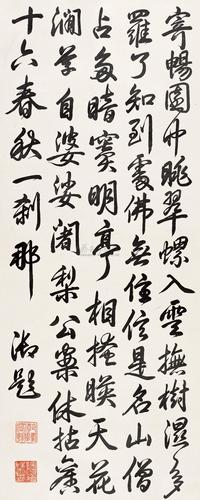 寄暢園中眺翠螺入雲撫樹濕多
羅了知到處佛無住信是名山僧
占多暗竇明亭相掩暎天花
澗草自婆娑闍梨公案休拈舊
十六春秋一剎那
御題